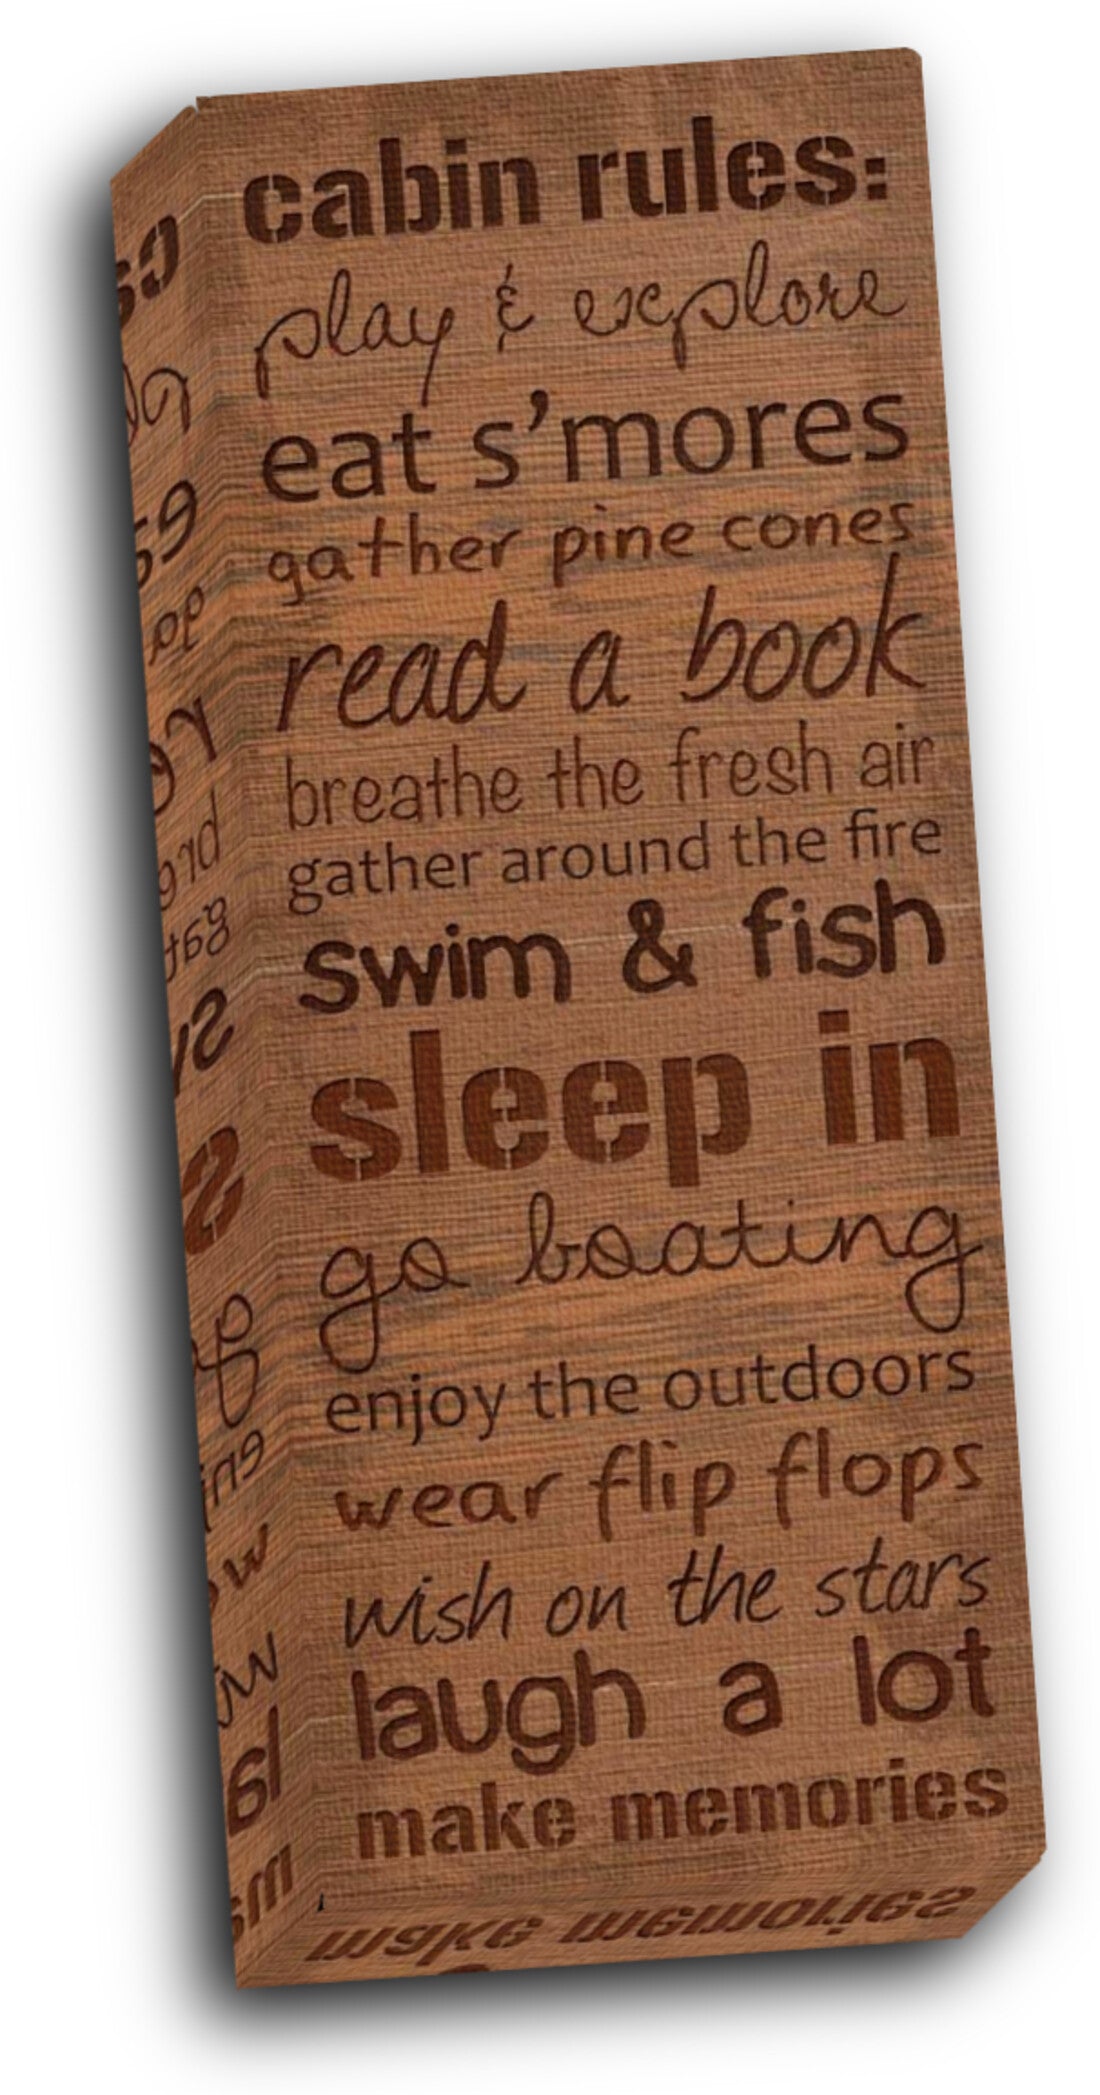 cabin rules:
play & explore
eat s'mores
gather pine cones
read a book
breathe the fresh air
gather around the fire
swim & fish
sleep in
go boating
enjoy the outdoors
wear flip flops
wish on the stars
laugh a lot
make memories